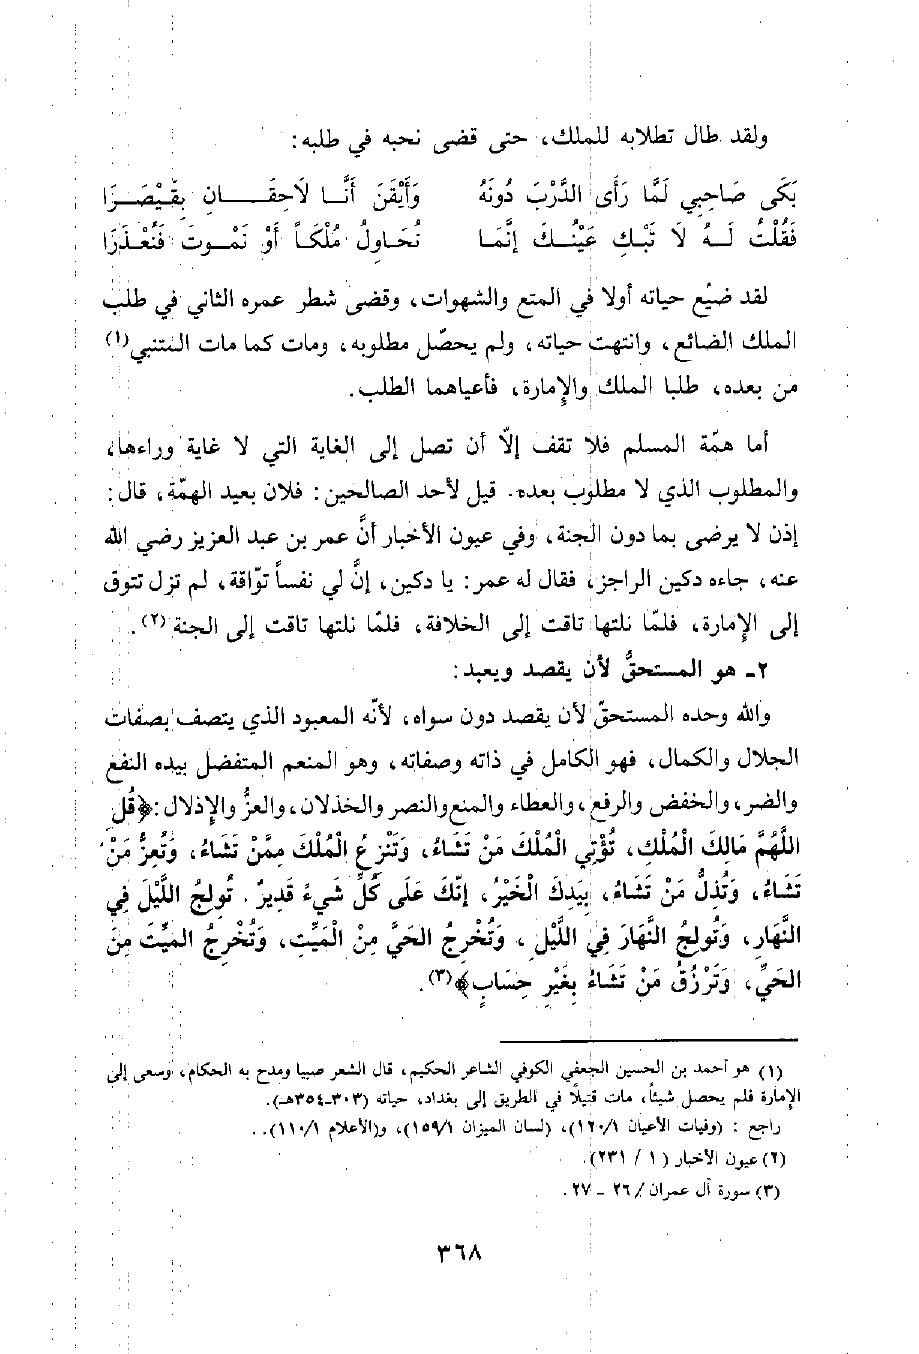 ولقد طال تطلابه للملك، حتى قضى نحبه في طلبه:
بَكَى صَاحِبي لَمَّا رَأَى الدَّرْبَ دُونَهُ وَأَيْقَنَ أَنَّـا لَاحِقَـــان بقَيْصَـرَا
فَقُلْتُ لَـهُ لَا تَبْـكِ عَيْنُـكَ إنَّمَـا نُحَـاولُ مُلْكـاً أَوْ نَمُـوتَ فَنُعْـذَرَا
لقد ضيّع حياته أولا في المتع والشهوات، وقضى شطر عمره الثاني في طلب
الملك الضائع، وانتهت حياته، ولم يحصّل مطلوبه، ومات كما مات المتنبي(١)
من بعده، طلبا الملك والإمارة، فأعياهما الطلب.
أما همّة المسلم فلا تقف إلّا أن تصل إلى الغاية التي لا غاية وراءها،
والمطلوب الذي لا مطلوب بعده. قيل لأحد الصالحين: فلان بعيد الهمّة، قال:
إذن لا يرضى بما دون الجنة، وفي عيون الأخبار أنَّ عمر بن عبد العزيز رضي الله
عنه، جاءه دكين الراجز، فقال له عمر: يا دكين، إنَّ لي نفساً توّاقة، لم تزل تتوق
إلى الإمارة، فلمّا نلتها تاقت إلى الخلافة، فلمّا نلتها تاقت إلى الجنة (٢).
٢ـ هو المستحقُّ لأن يقصد ويعبد:
والله وحده المستحقّ لأن يقصد دون سواه، لأنّه المعبود الذي يتصف بصفات
الجلال والكمال، فهو الكامل في ذاته وصفاته، وهو المنعم المتفضل بيده النفع
والضر، والخفض والرفع، والعطاء والمنع والنصر والخذلان، والعزُّ والإذلال: ﴿قُلِ
اللَّهُمَّ مَالِكَ الْمُلْكِ، تُؤْتِي الْمُلْكَ مَنْ تَشَاءُ، وَتَنْزِعُ الْمُلْكَ مِمَّنْ تَشَاءُ، وَتُعِزُّ مَنْ
تَشَاءُ، وَتُذِلُّ مَنْ تَشَاءُ، بِيَدِكَ الْخَيْرُ، إنّكَ عَلَى كُلِّ شَيءٌ قَدِيرٌ. تُولِجُ اللَّيْلَ فِي
النَّهَارِ، وَتُولِجُ النَّهَارَ فِي اللَّيْلِ، وَتُخْرِجُ الحَيَّ مِنْ الْمَيِّتِ، وَتُخْرِجُ الميِّتَ مِنَ
الحَيِّ، وَتَرْزُقُ مَنْ تَشَاءُ بِغَيْرِ حِسَابٍ﴾(٣).
(١) هو أحمد بن الحسين الجعفي الكوفي الشاعر الحكيم، قال الشعر صبيا ومدح به الحكام، وسعى إلى
الإمارة فلم يحصل شيئاً، مات قتيلاً في الطريق إلى بغداد، حياته (٣٠٣-٣٥٤هـ).
راجع : (وفيات الأعيان ١٢٠/١)، (لسان الميزان ١٥٩/١)، و(الأعلام ١١٠/١)..
(٢) عيون الأخبار (١ / ٢٣١).
(٣) سورة آل عمران / ٢٦ - ٢٧.
٣٦٨